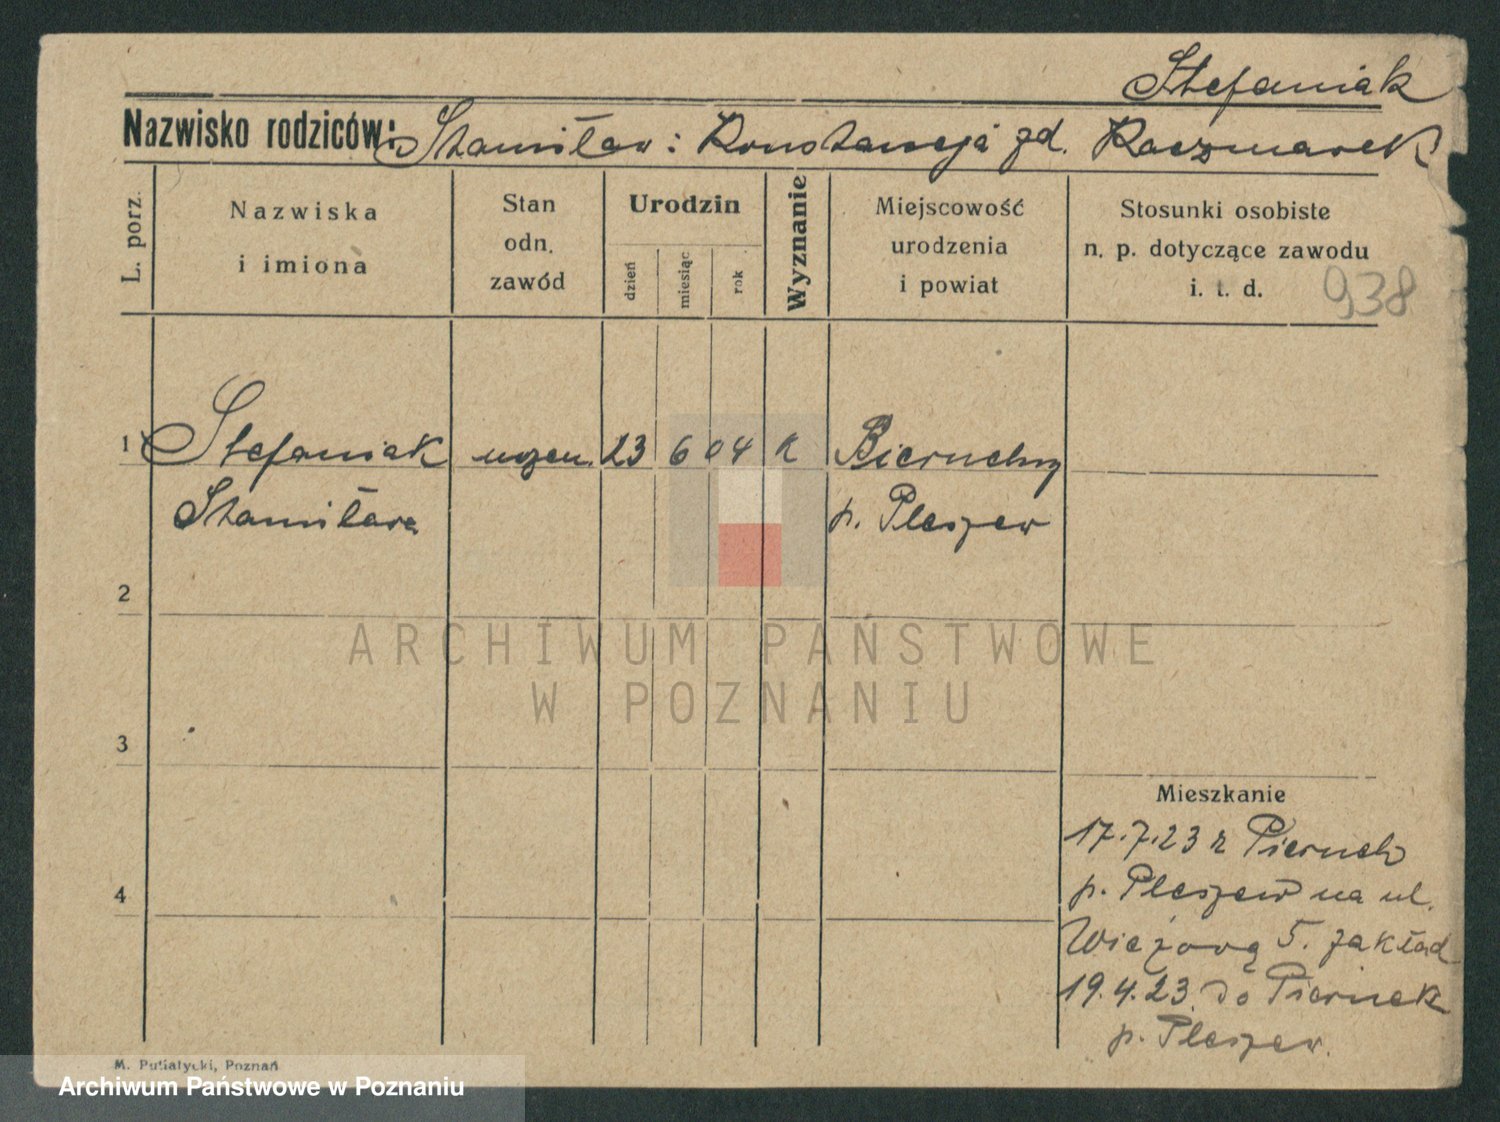 Stefaniak
Nazwisko rodziców: Stanisław i Konstancja zd. Kaczmarek
L. porz.
Nazwiska
i imiona
Stan
odn.
zawód
Urodzin
dzień
miesiąc
rok
Wyznanie
Miejscowość
urodzenia
i powiat
Stosunki osobiste
n. p. dotyczące zawodu
i. t. d.
938
1 Stefaniak uczen. 23 6 04 k Bieruchy
Stanisława p. Pleszew
2
ARCHIWUM PAŃSTWOWE
W POZNANIU
3
Mieszkanie
17.7.23 z
4
p. Pleszew na ul.
Wieżową 5. zakład
19.4.23 do
p. Pleszew.
M. Putiatycki, Poznań
Archiwum Państwowe w Poznaniu